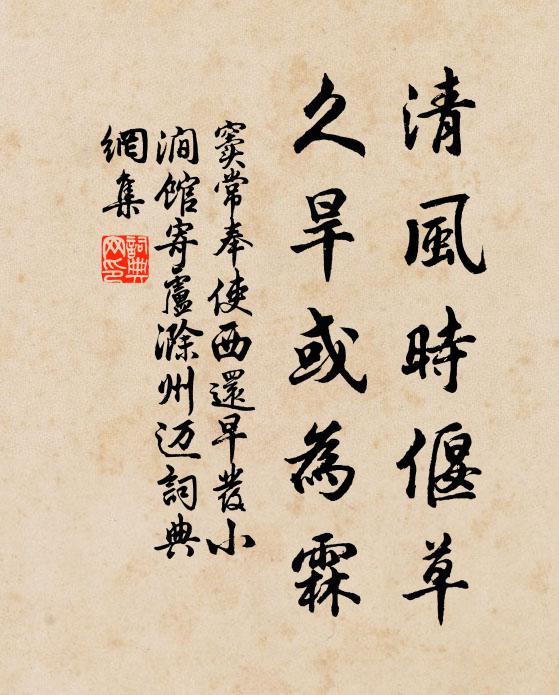 清風時偃草
久旱或為霖
竇常奉使西還早發小
澗館寄盧滁州迈詞典
網集
詞典网印